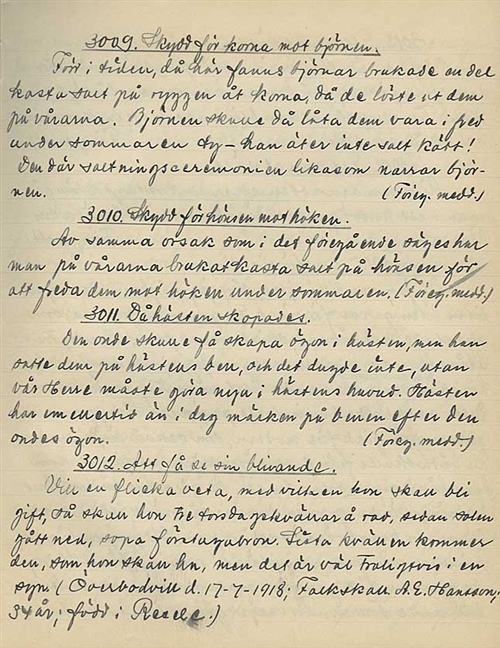 3009. Skydd för korna mot björnen.
Förr i tiden, då här fanns björnar brukade en del
kasta salt på ryggen åt korna, då de löste ut dem
på vårarna. Björnen skulle då låta dem vara i fred
under sommaren ty – han äter inte salt kött!
Den där saltningsceremonien likasom narrar björ-
nen. (Föreg. medd.)
3010. Skydd för hönsen mot höken.
Av samma orsak som i det föregående säges har
man på vårarna brukat kasta salt på hönsen för
att freda dem mot höken under sommaren. (Föreg. medd.)
3011. Då hästen skapades.
Den onde skulle få skapa ögon i hästen, men han
satte dem på hästens ben, och det dugde inte, utan
vår Herre måste göra nya i hästens huvud. Hästen
har emellertid än i dag märken på benen efter den
ondes ögon. (Föreg. medd.)
3012. Att få se sin blivande.
Vill en flicka veta, med vilken hon skall bli
gift, så skall hon tre torsdagskvällar å rad, sedan solen
gått ned, sopa förstugubron. Sista kvällen kommer
den, som hon skall ha, men det är väl troligtvis i en
syn. (Överbodvill d. 17-7-1918; Folkskoll. A. E. Hansson;
34 år; född i Resele.)